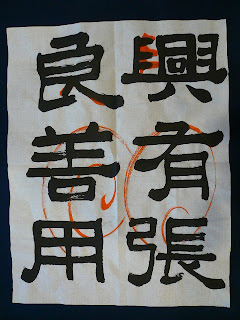 興有張
良善用